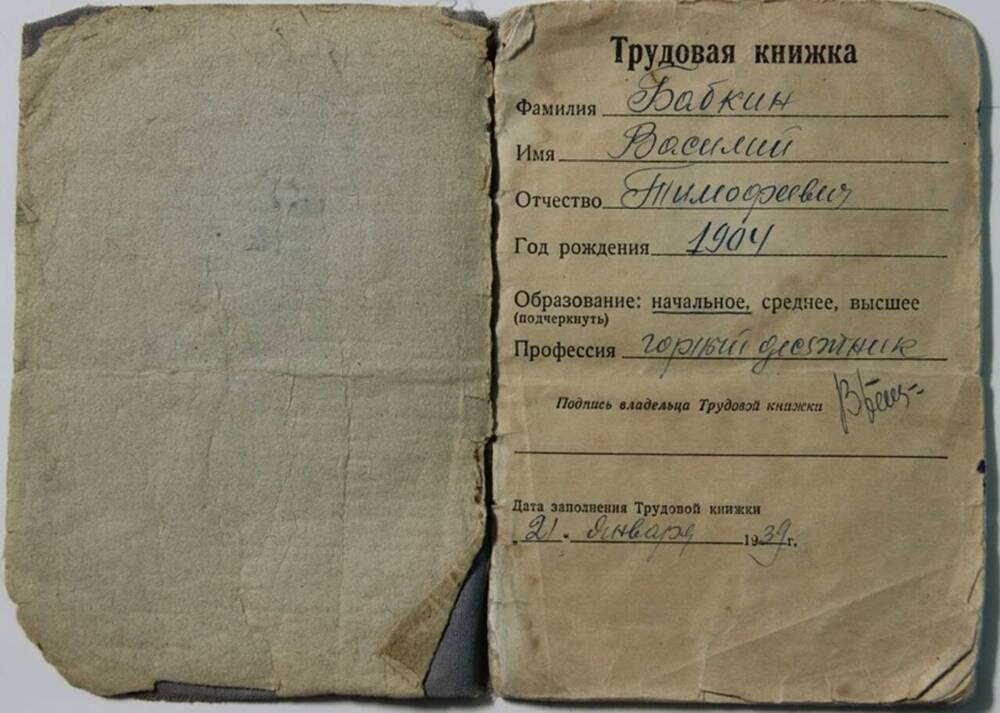 Трудовая книжка
Фамилия Бабкин
Имя Василий
Отчество Тимофеевич
Год рождения 1904
Образование: начальное, среднее, высшее
(подчеркнуть)
Профессия горный десятник
Подпись владельца Трудовой книжки
Дата заполнения Трудовой книжки
"21" января 1939 г.